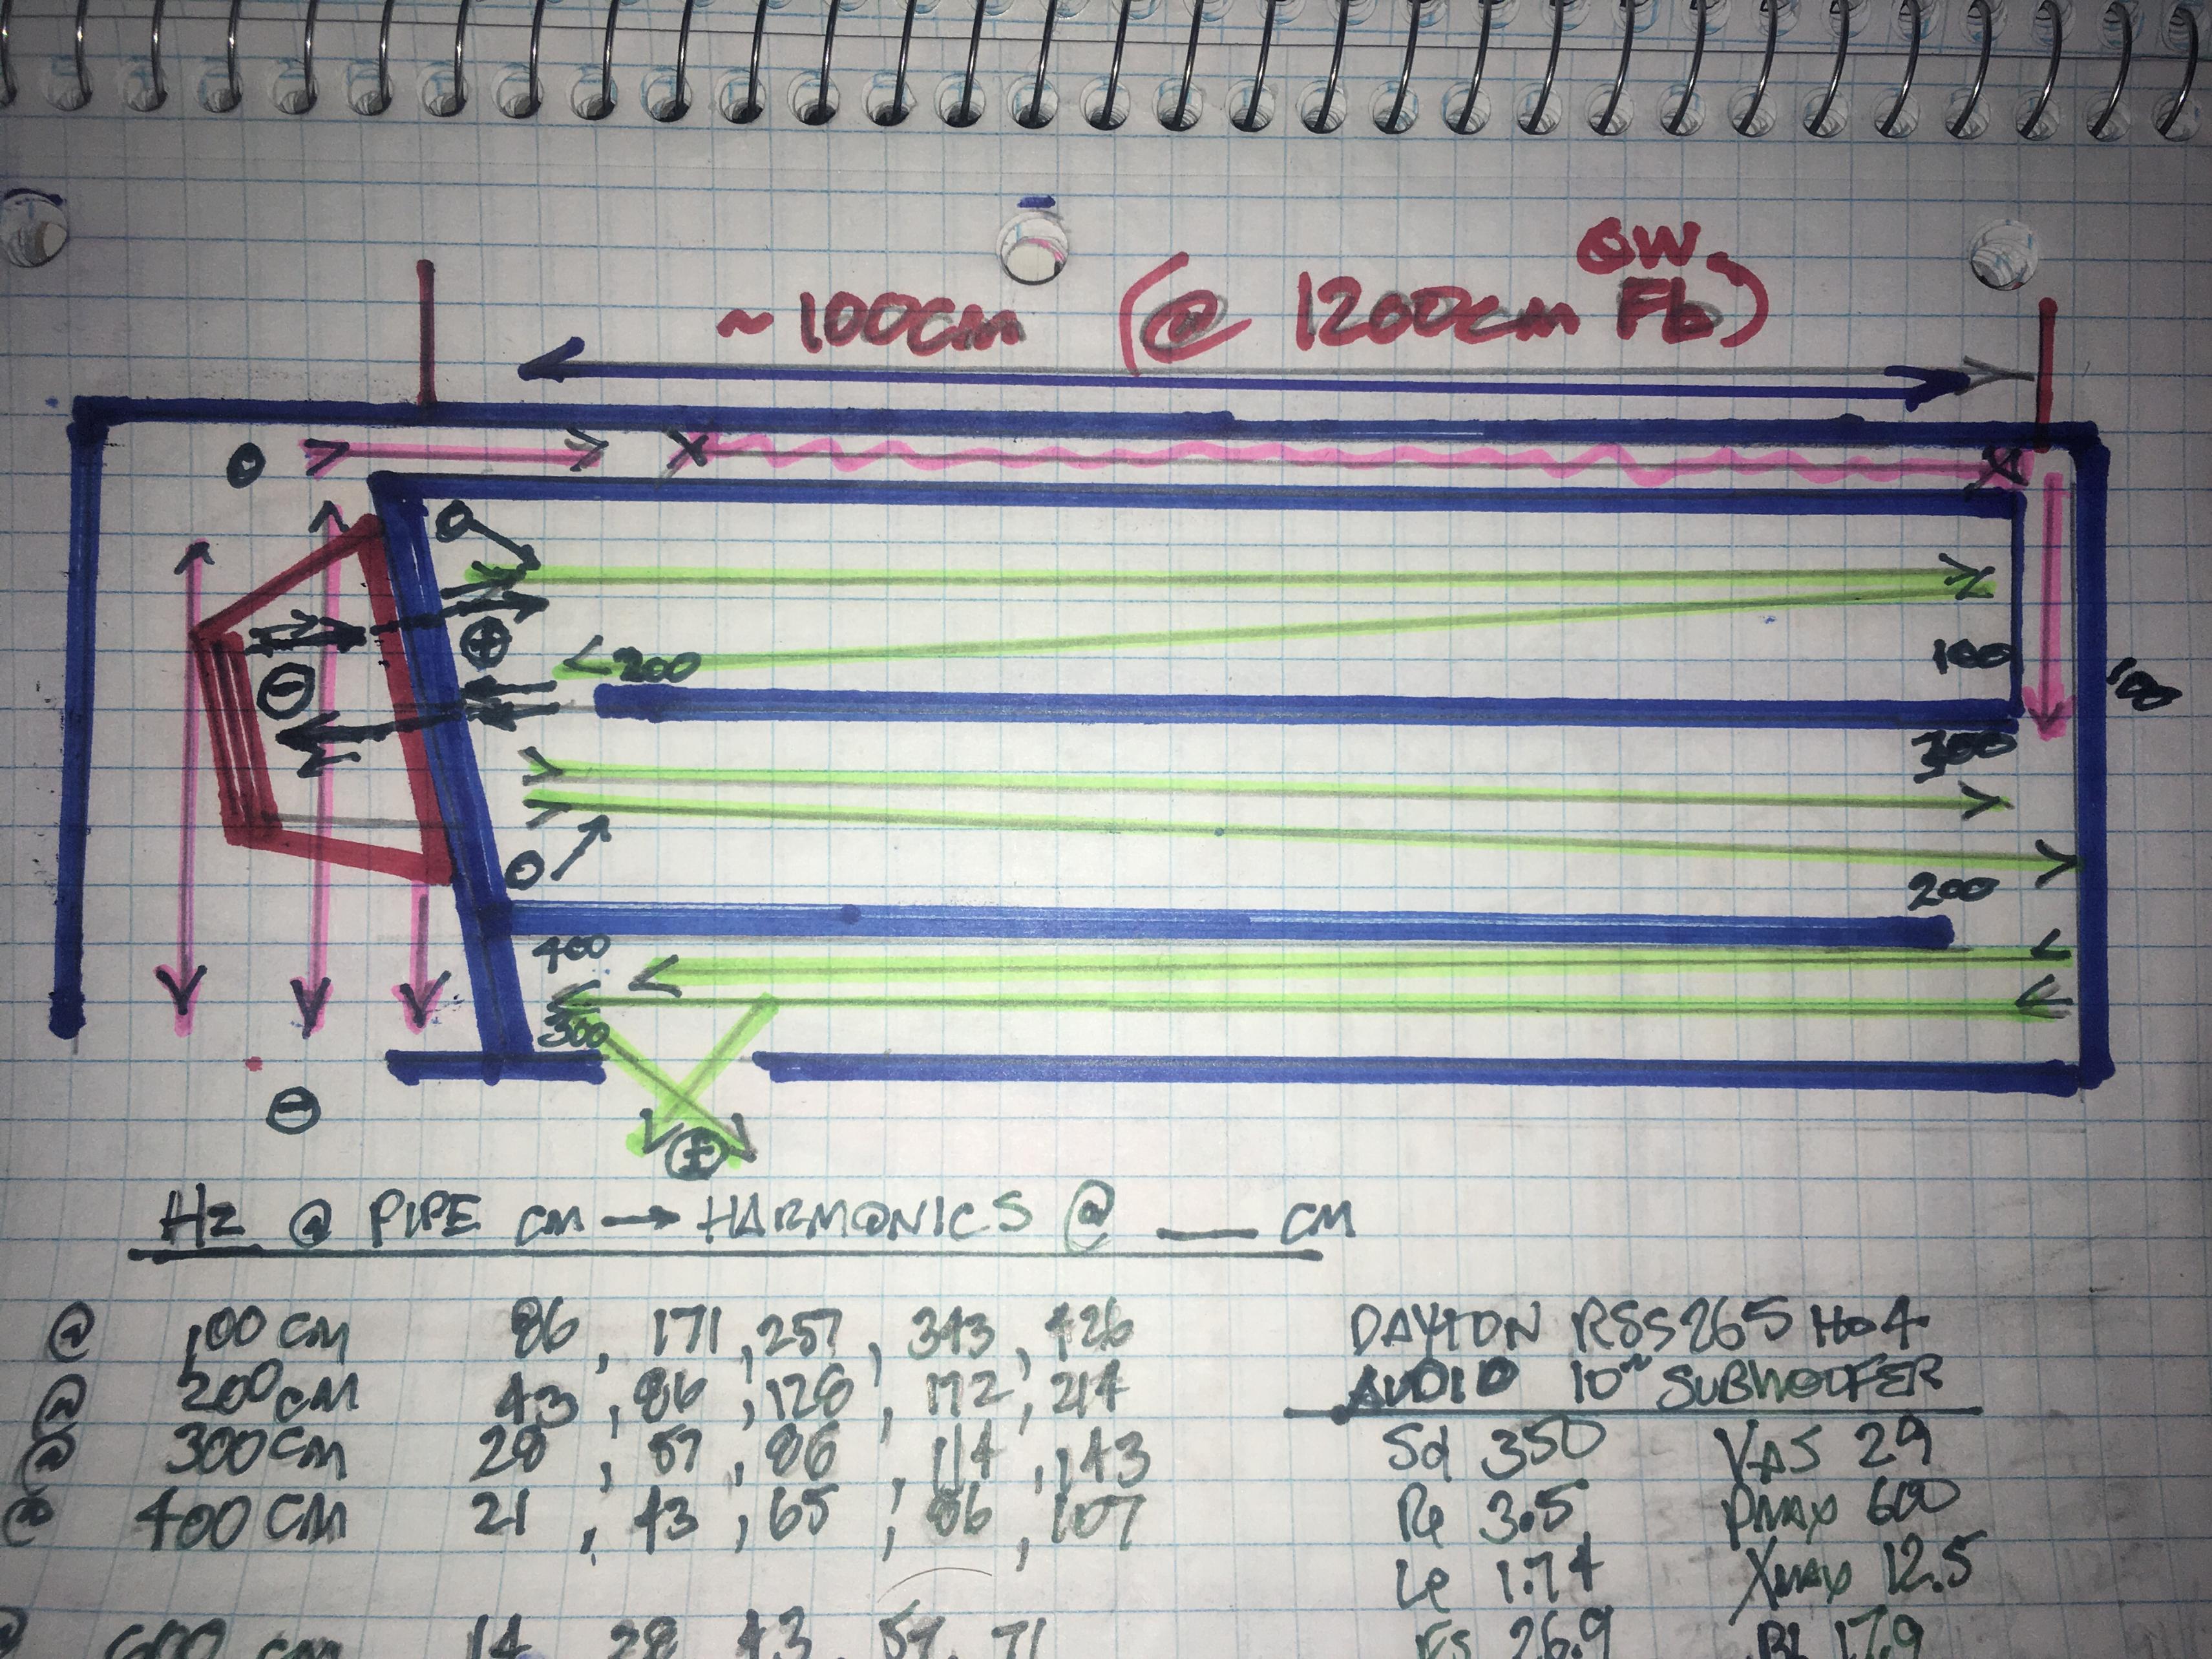 QW
~100cm (@ 1200cm Fb)
200
100
100
300
200
400
300
Hz @ PIPE CM → HARMONICS @ ___ CM
@ 100 CM 86, 171, 257, 343, 426
@ 200 CM 43, 86, 128, 172, 214
@ 300 CM 28, 57, 86, 114, 143
@ 400 CM 21, 43, 65, 86, 107
@ 600 cm 14 28 43 57 71
DAYTON RSS265 HO4
AUDIO 10" SUBWOOFER
Sd 350 VAS 29
Re 3.5 PMAX 600
Le 1.74 XMAX 12.5
Fs 26.9 BL 17.9